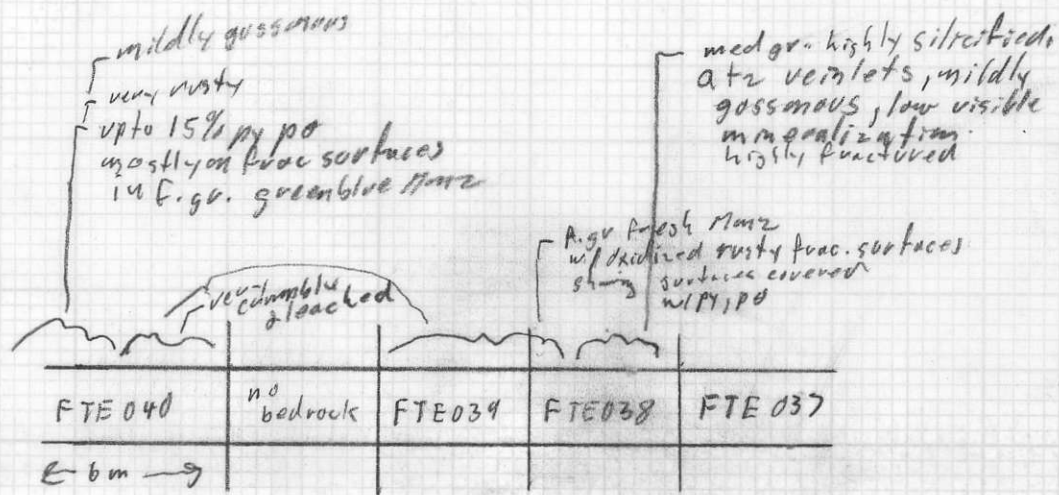 mildly gossonous
very rusty
upto 15% py po
mostly on frac surfaces
in f.gr. greenblue Monz
med gr. highly silicified,
qtz veinlets, mildly
gossonous, low visible
mineralization.
highly fractured
f.gr fresh Monz
w/ oxidized rusty frac. surfaces
surfaces covered
w/ py, po
very
crumbly
leached
FTE 040
no
bedrock
FTE039
FTE038
FTE 037
← 6m →